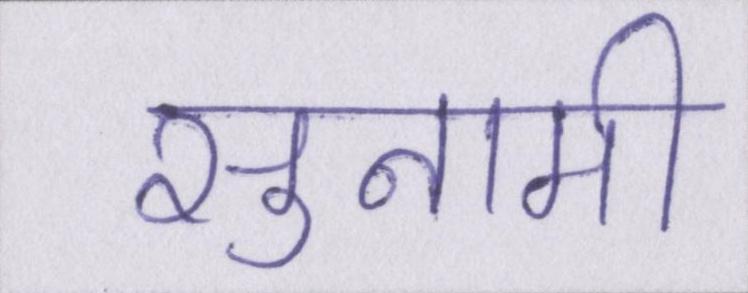 सुनामी